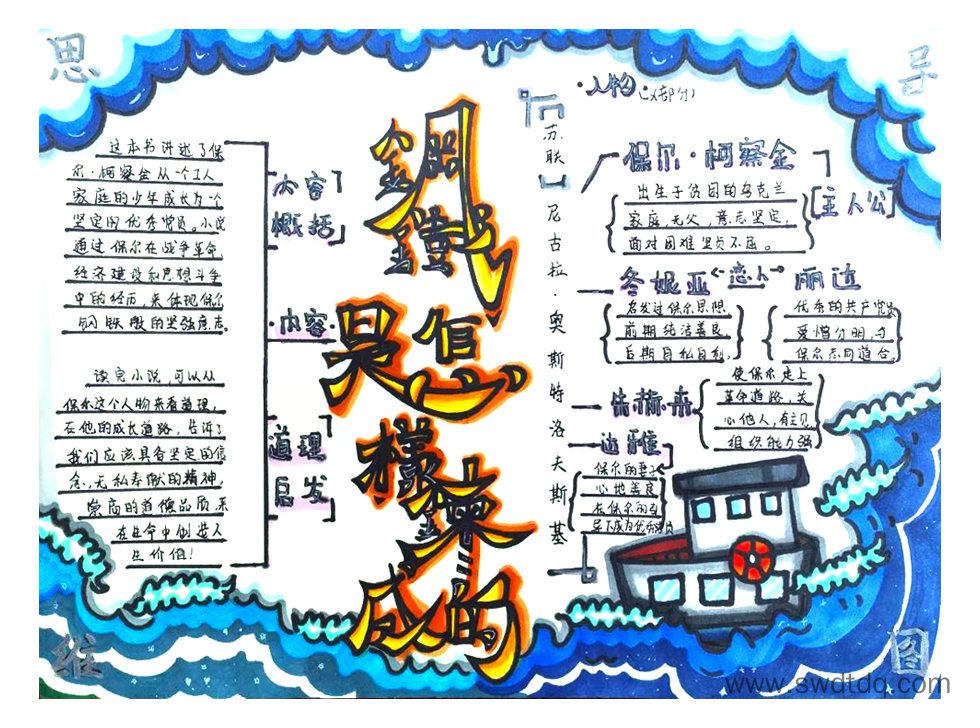 思
导
维
图
钢
铁
是
怎
样
炼
成
的
内容
概括
这本书讲述了保
尔·柯察金从一个工人
家庭的少年成长为一个
坚定的优秀党员。小说
通过保尔在战争革命,
经济建设和思想斗争
中的经历,来体现保尔
钢铁般的坚强意志。
内容
道理
启发
读完小说,可以从
保尔这个人物来看道理,
在他的成长道路,告诉了
我们应该具备坚定的信
念,无私奉献的精神,
崇高的道德品质,来
在生命中创造人
生价值!
[苏联]尼古拉·奥斯特洛夫斯基
·人物(部分)
保尔·柯察金
[主人公]
出生于贫困的乌克兰
家庭,无父,意志坚定,
面对困难坚贞不屈。
冬妮亚 恋人 丽达
启发过保尔思想
前期纯洁善良
后期自私自利,
优秀的共产党员
爱憎分明,与
保尔志同道合,
朱赫来
使保尔走上
革命道路,关
心他人,有主见
组织能力强
达雅
保尔的妻子
心地善良
在保尔的引
导下成为优秀党员
www.swdtdq.com